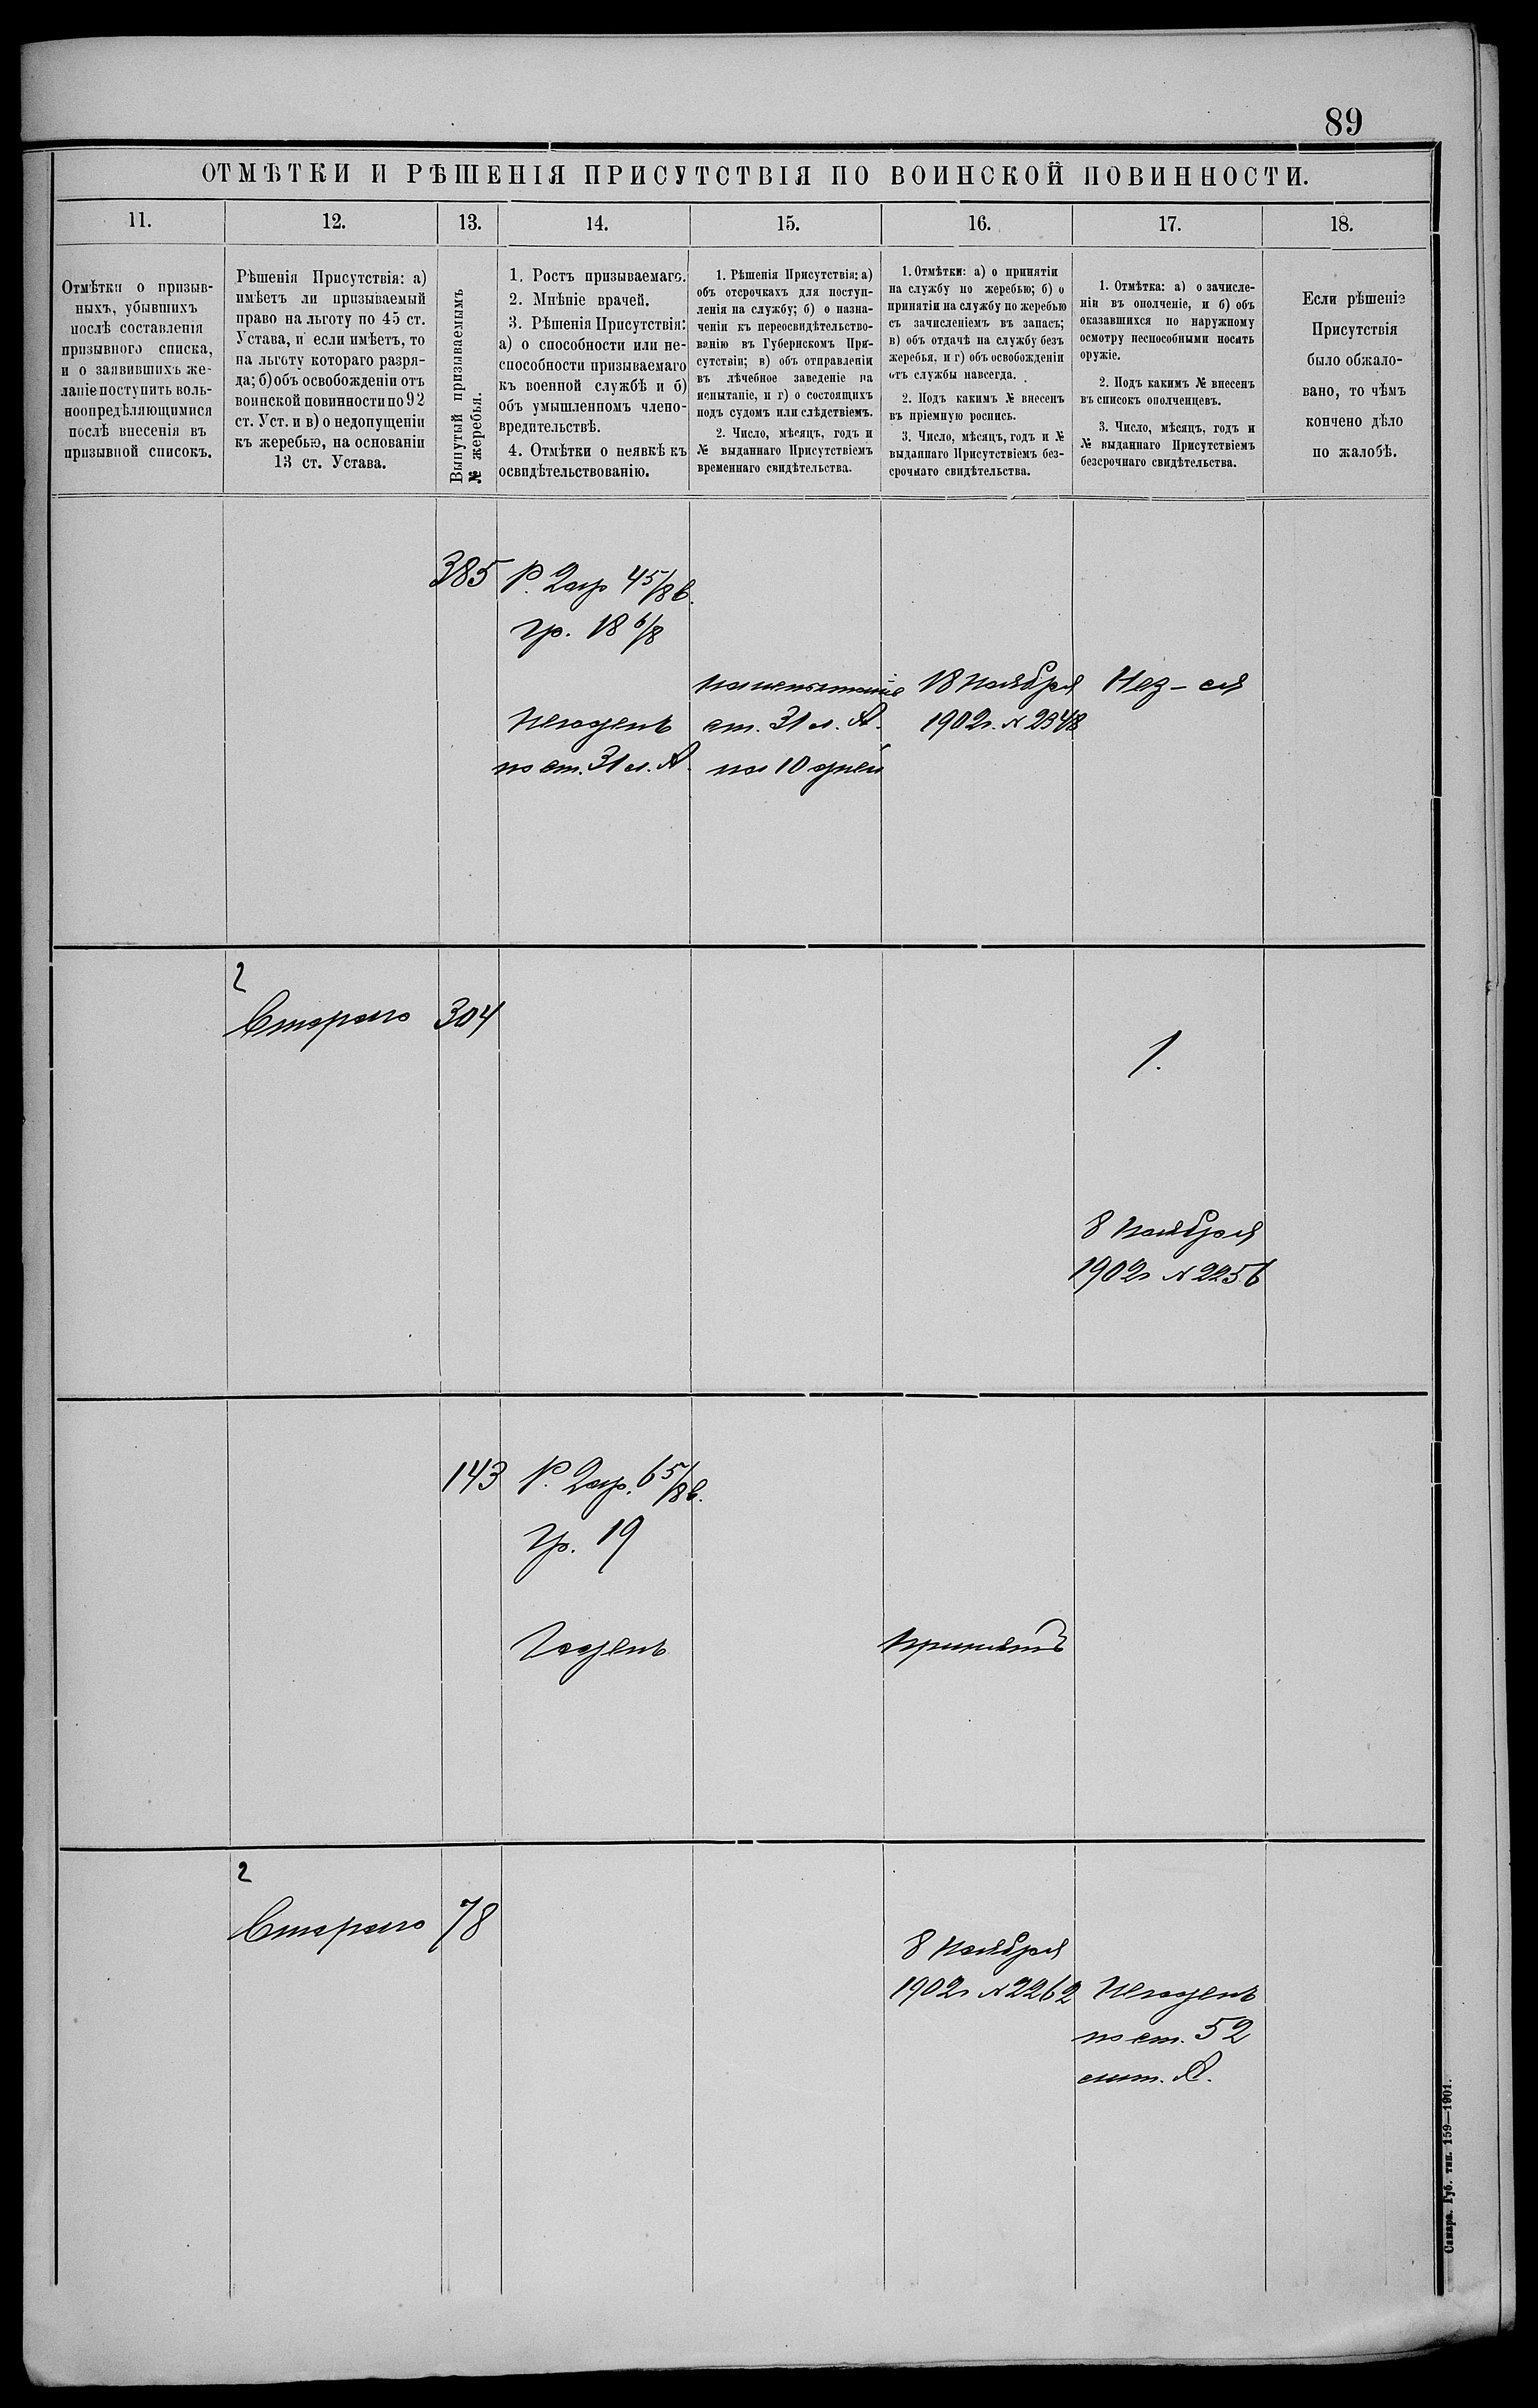 89
ОТМѢТКИ И РѢШЕНІЯ ПРИСУТСТВІЯ ПО ВОИНСКОЙ ПОВИННОСТИ.
11.
12.
13.
14.
15.
16.
17.
18.
Отмѣтки о призыв-
ныхъ, убывшихъ
послѣ составленія
призывного списка,
и о заявившихъ же-
ланіе поступить воль-
ноопредѣляющимися
послѣ внесенія въ
призывной списокъ.
Рѣшенія Присутствія: а)
имѣетъ ли призываемый
право на льготу по 45 ст.
Устава, и если имѣетъ, то
на льготу котораго разря-
да; б) объ освобожденіи отъ
воинской повинности по 92
ст. Уст. и в) о недопущеніи
къ жеребью, на основаніи
13 ст. Устава.
Вынутый призываемымъ
№ жеребья.
1. Ростъ призываемаго.
2. Мнѣніе врачей.
3. Рѣшенія Присутствія:
а) о способности или не-
способности призываемаго
къ военной службѣ и б)
объ умышленномъ члено-
вредительствѣ.
4. Отмѣтки о неявкѣ къ
освидѣтельствованію.
1. Рѣшенія Присутствія: а)
объ отсрочкахъ для поступ-
ленія на службу; б) о назна-
ченіи къ переосвидѣтельство-
ванію въ Губернскомъ При-
сутствіи; в) объ отправленіи
въ лѣчебное заведеніе на
испытаніе, и г) о состоящихъ
подъ судомъ или слѣдствіемъ.
2. Число, мѣсяцъ, годъ и
№ выданнаго Присутствіемъ
временнаго свидѣтельства.
1. Отмѣтки: а) о принятіи
на службу по жеребью; б) о
принятіи на службу по жеребью
съ зачисленіемъ въ запасъ;
в) объ отдачѣ на службу безъ
жеребья, и г) объ освобожденіи
отъ службы навсегда.
2. Подъ какимъ № внесенъ
въ пріемную роспись.
3. Число, мѣсяцъ, годъ и №
выданнаго Присутствіемъ без-
срочнаго свидѣтельства.
1. Отмѣтка: а) о зачисле-
ніи въ ополченіе, и б) объ
оказавшихся по наружному
осмотру неспособными носить
оружіе.
2. Подъ какимъ № внесенъ
въ списокъ ополченцевъ.
3. Число, мѣсяцъ, годъ и
№ выданнаго Присутствіемъ
безсрочнаго свидѣтельства.
Если рѣшеніе
Присутствія
было обжало-
вано, то чѣмъ
кончено дѣло
по жалобѣ.
385
Р. 2 ар 4 5/8 в.
гр. 18 6/8
Негоденъ
по ст. 31 л. А.
на испытаніе
ст. 31 л. А.
на 10 дней
18 Ноября
1902г. № 2348
Нез-ся
2
Второго
304
1.
8 Ноября
1902г № 2256
143
Р. 2 ар. 6 5/8 в.
гр. 19
Годенъ
Принятъ
2
Второго
78
8 Ноября
1902г № 2262
Негоденъ
по ст. 52
лит. А.
Самара. Губ. тип. 159—1901.